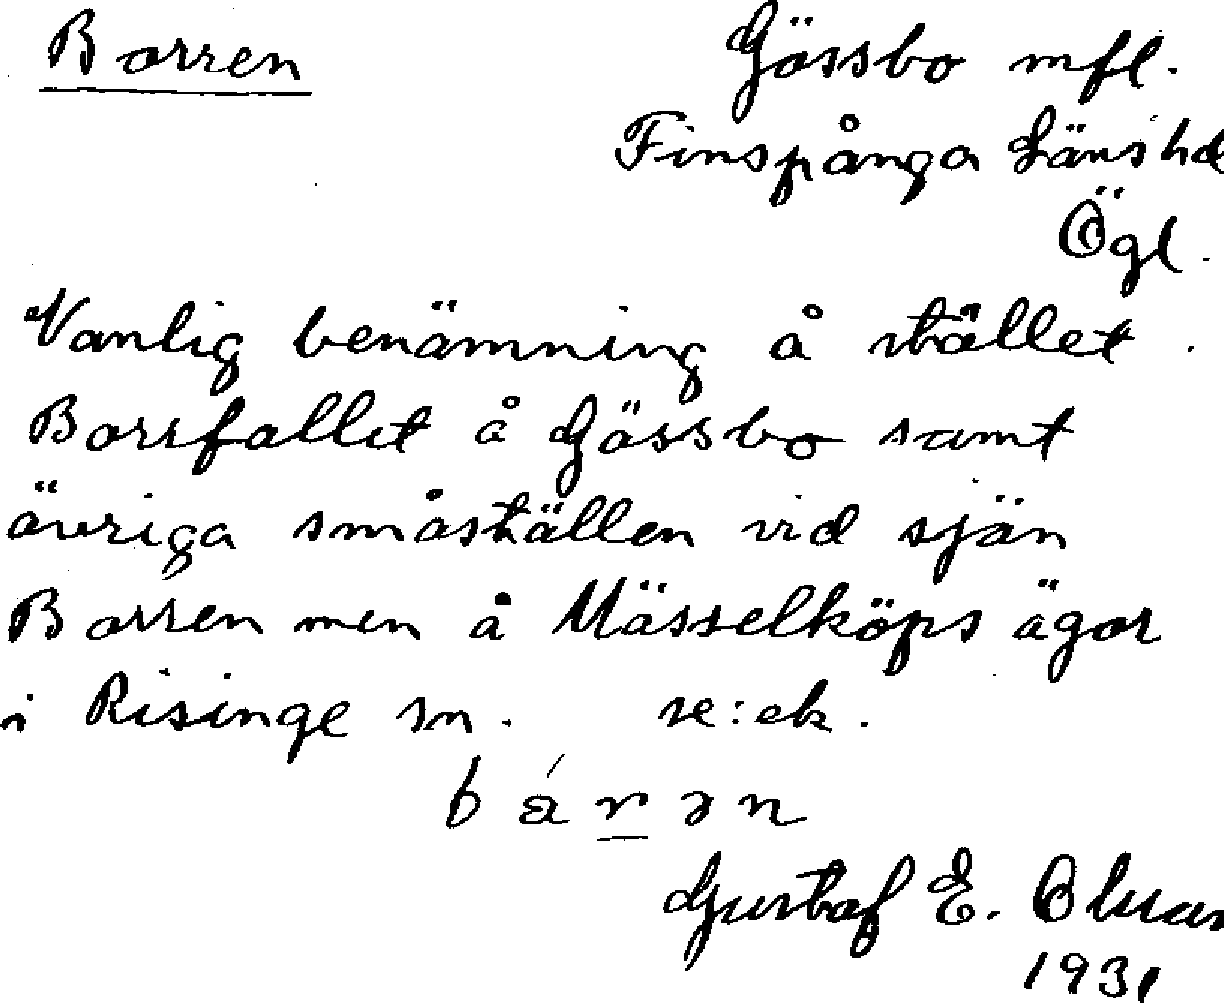 Borren Gössbo mfl.
Finspånga Läns hd
Ögl.
Vanlig benämning å stället
Borrfallet å Gössbo samt
övriga småställen vid sjön
Borren men å Mösselköps ägor
i Risinge sn. se: ek.
Gustaf E.
1931